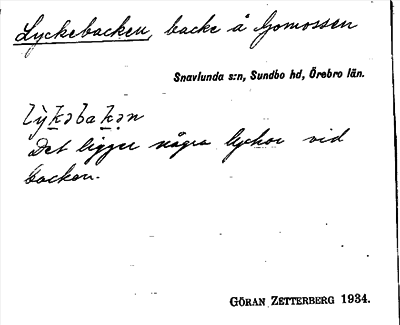 Lyckebacken, backe å Gomossen
Snavlunda s:n, Sundbo hd, Örebro län.
lỳkəbakən
Det ligger några lyckor vid
backen.
GÖRAN ZETTERBERG 1934.